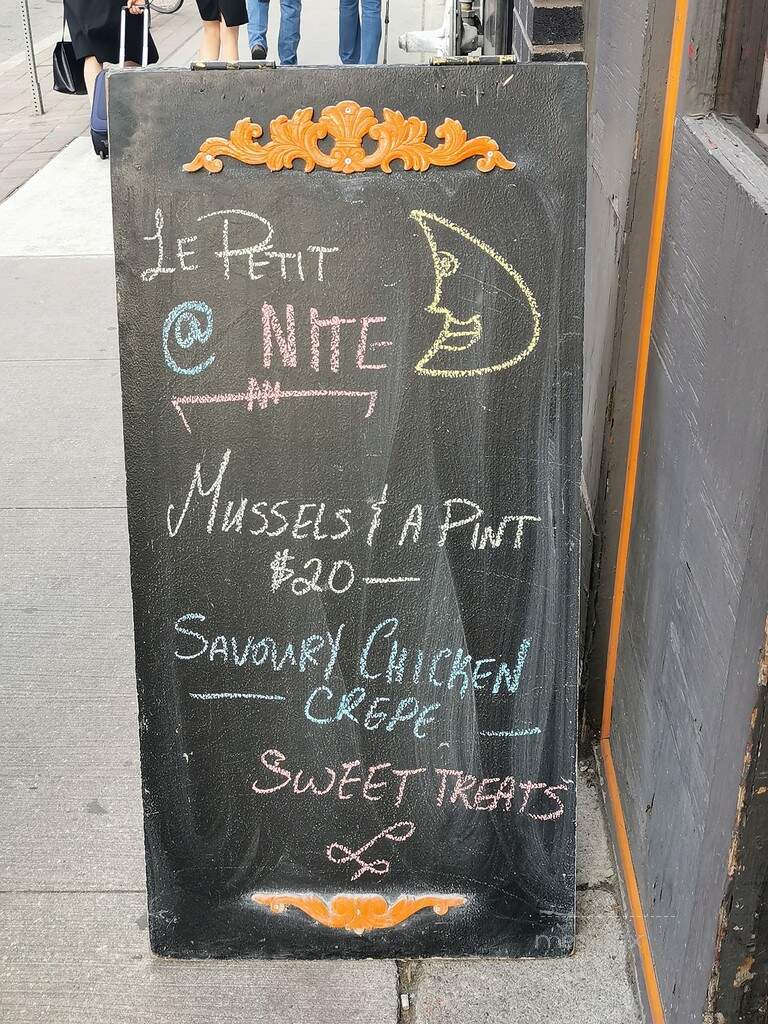 LE PETIT
@ NITE
MUSSELS & A PINT
$20 —
SAVOURY CHICKEN
— CREPE —
SWEET TREATS